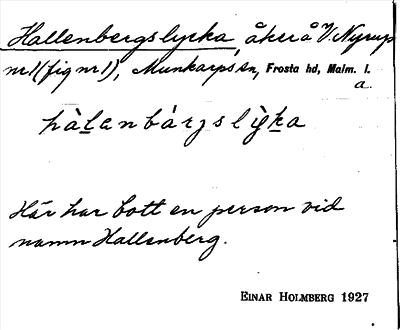 Hallenbergslycka, åker å V. Nyrup
nr 1 (fig nr 1), Munkarps sn, Frosta hd, Malm. l.
a.
hàlanbárzslỳka
Här har bott en person vid
namn Hallenberg.
EINAR HOLMBERG 1927